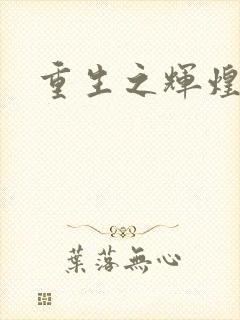 重生之輝煌
葉落無心